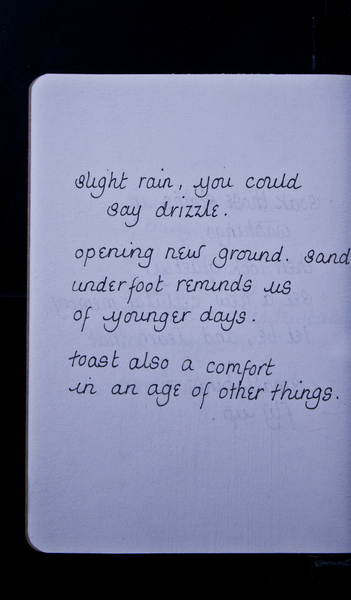 slight rain, you could
say drizzle.
opening new ground. sand
underfoot reminds us
of younger days.
toast also a comfort
in an age of other things.